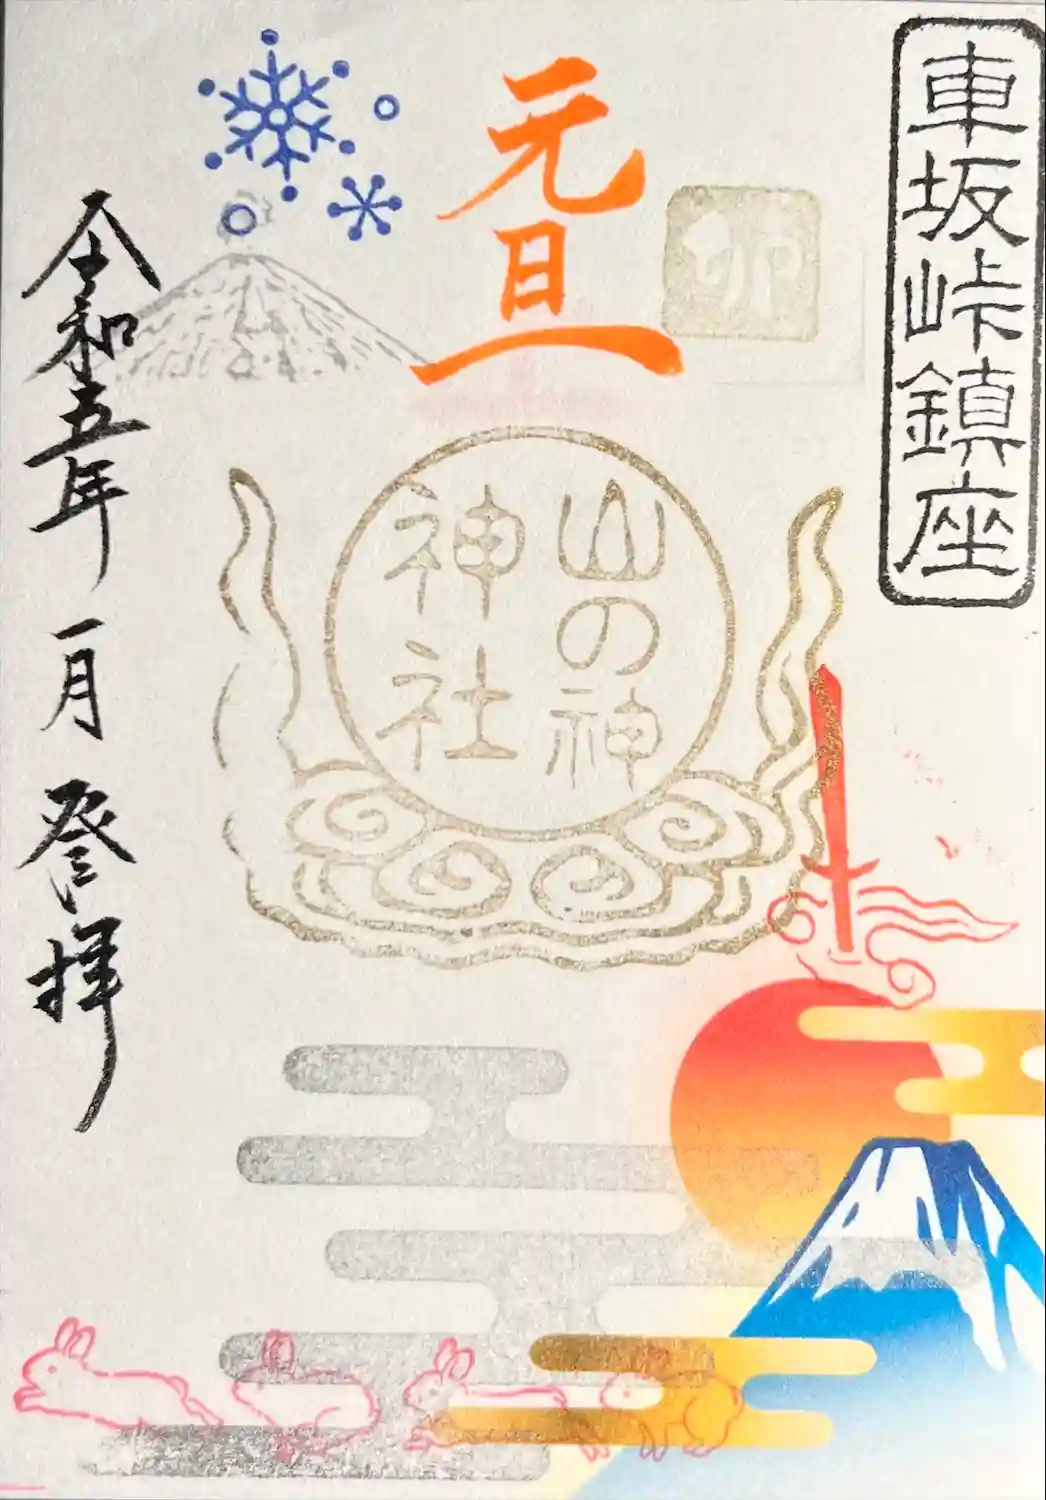 車坂峠鎮座
卯
元旦
山の神
神社
令和五年一月登拝